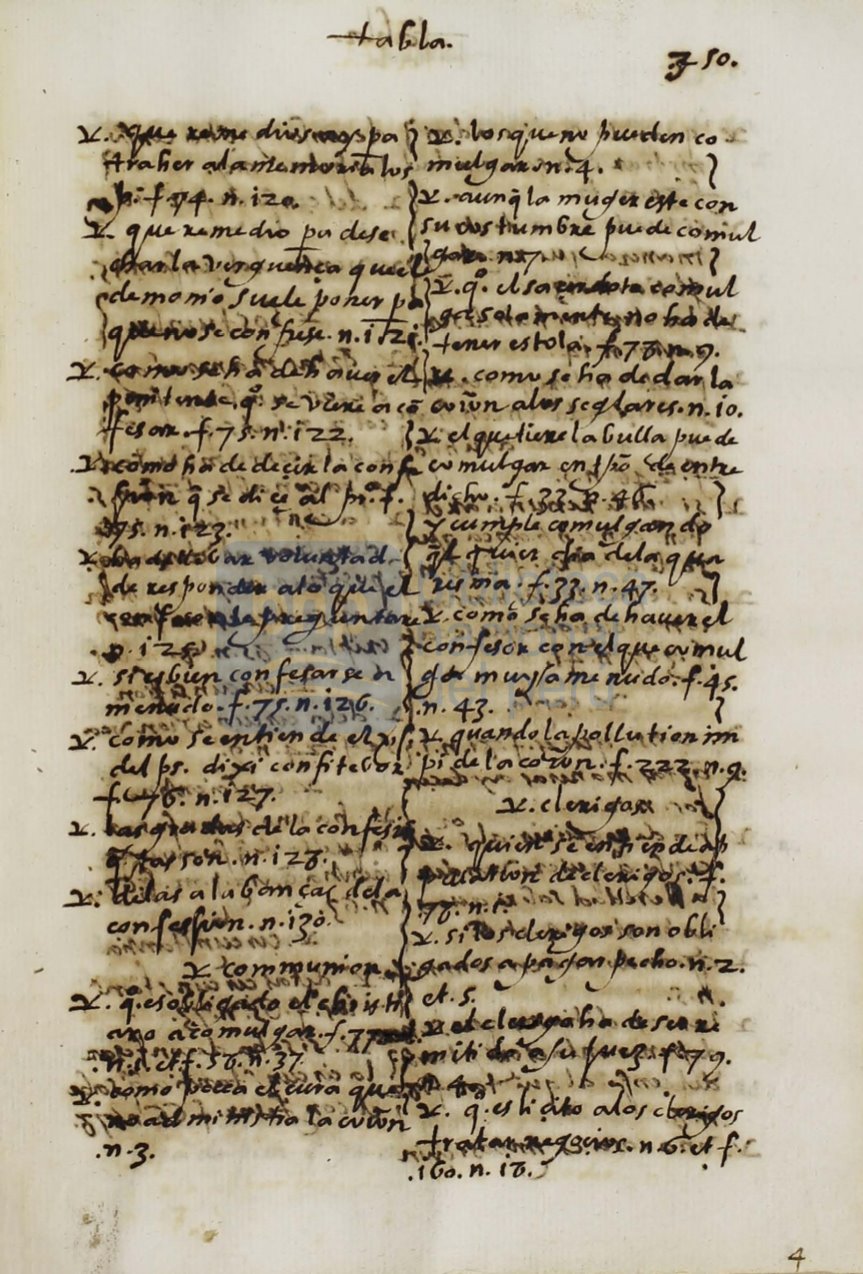 tabla.
350.
v. que remedios ay pa
traher a la memoria los
p. f. 74. n. 120.
v. que remedio pa dese
char la verguença que el
demonio suele poner pa
que no se confiese. n. 121.
v. como se ha de haver el
penitente, q.º se viere a cõ
fesar. f. 75. n. 122.
v. como ha de decir la conf
sion q̃ se dice al pr.º f.
75. n. 123.
voluntad
de responder a lo que el
confesor le preguntare
v. si es bien confesarse a
menudo. f. 75. n. 126.
v. como se entiende el
del ps. dixi confitebor
f. 76. n. 127.
v. las de la confesio
son. n. 128.
v. de las alabanças de la
confession. n. 130.
v. communion.
v. q. es obligado el christi
ano a comulgar. f. 77.
n. 1. et f. 36. n. 37
v. como peca el cura que
no administra la cõiõn
.n. 3.
v. los que no pueden co
mulgar. n. 4.
v. aunq̃ la muger este con
su costumbre puede comul
gar. n. 7.
v. q.º el sacerdote comul
ga solamente, no ha de
tener estola. f. 78. n. 9.
v. como se ha de dar la
cõiõn a los seglares. n. 10.
v. el que tiene la bulla puede
comulgar en tpõ de entre
dicho. f. 33. n. 46.
y cumple comulgando
q̃l quier dia de la qua
resma. f. 33. n. 47.
v. como se ha de haver el
confesor con el que comul
gar muy a menudo. f. 45.
n. 43.
v. quando la pollution im
pide la cõiõn. f. 222. n. 9.
v. clerigos
v. quien se entiende
de clerigos. f.
78. n. 1.
v. si los clerigos son obli
gados a pagar pecho. n. 2.
et. 5.
v. el clerigo ha de ser re
mitido a su juez. f. 79.
v. q. es licito a los clerigos
tratar negocios. n. 6. et f.
.160. n. 18.
4